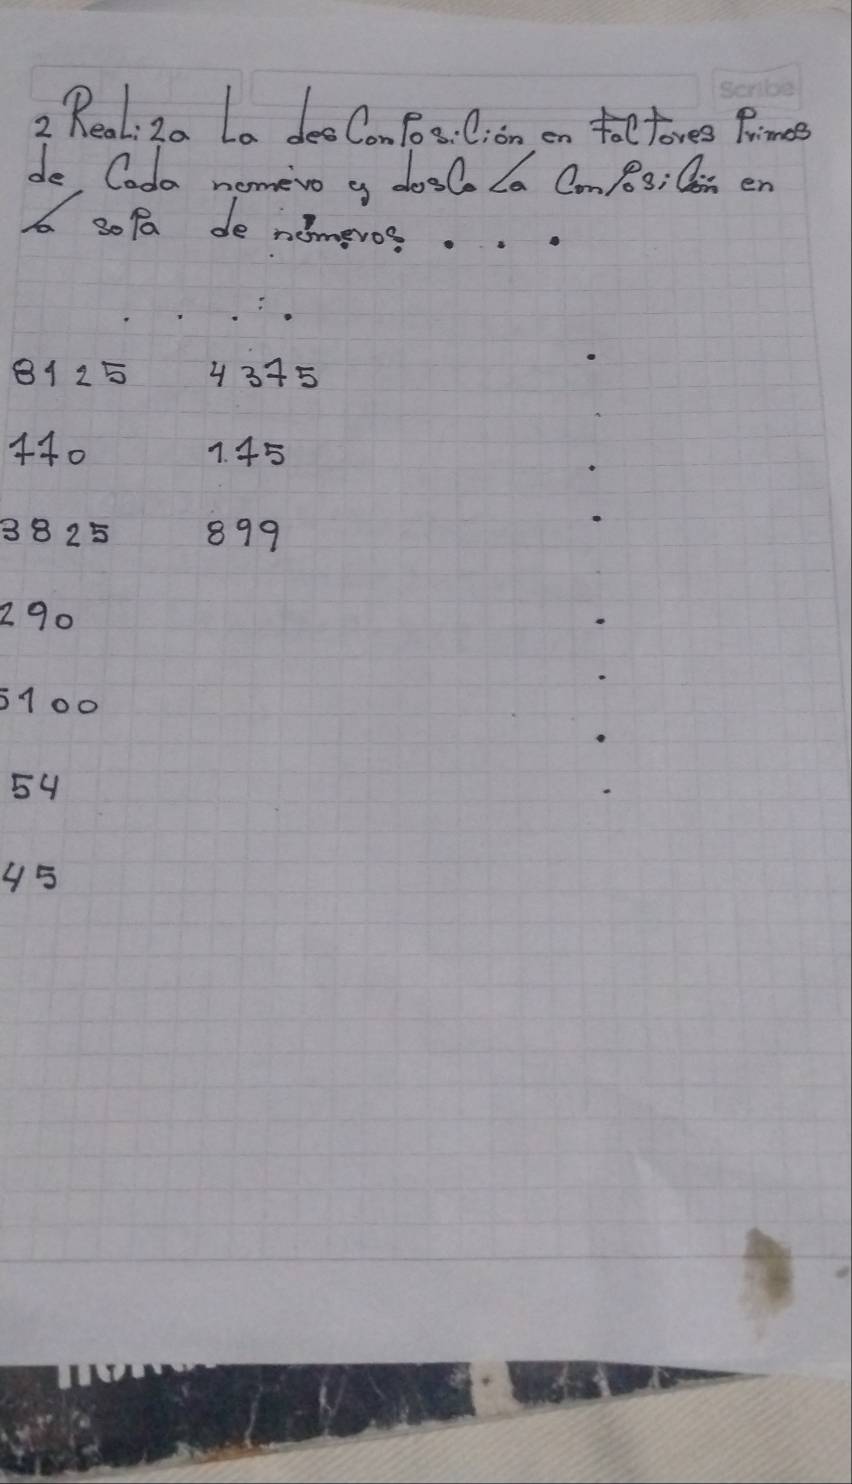 Scribe
2 Realiza La desConposiCión en faCtores Primos
de Cada nomero y bosCa La ConposiCión en
la sopa de números. . . .
. . . : .
8125 4375
770 175
3825 899
290
5100
54
45